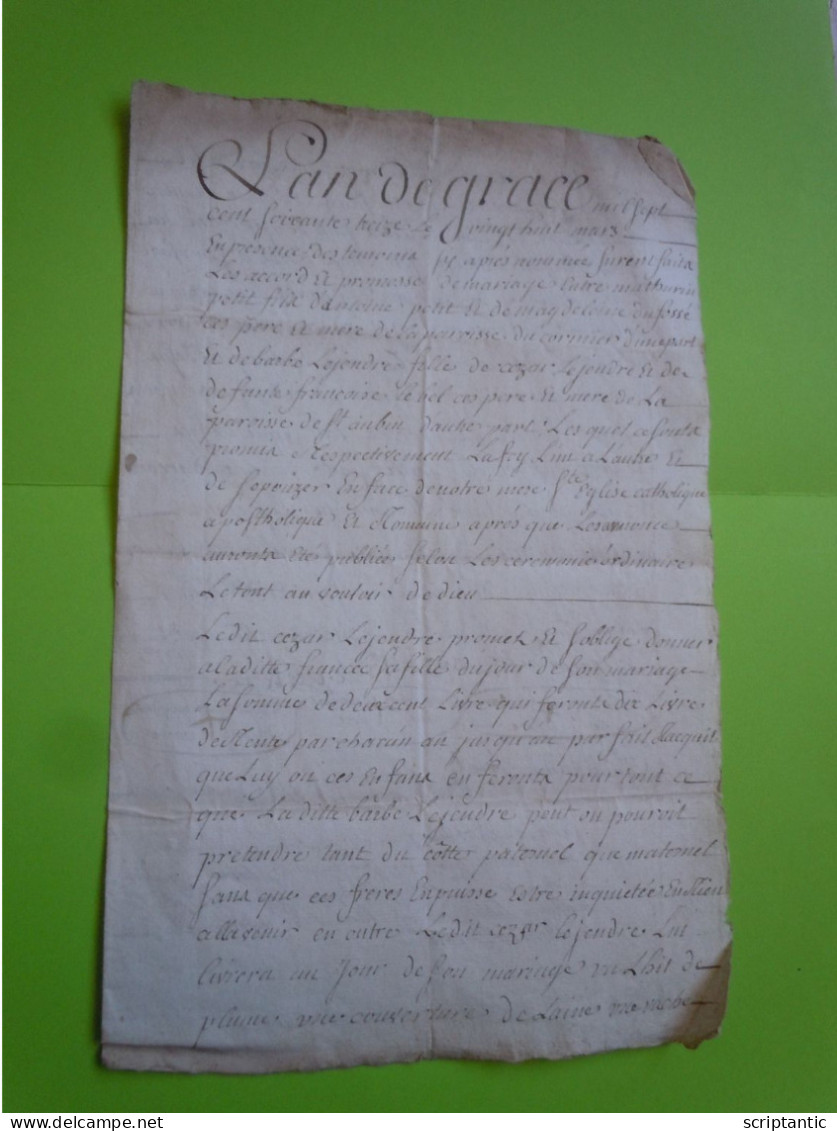 L'an de grace mil sept
cent soixante treize le vingt huit mars
En presence des temoins sy apres nommée furent faits
Les accord Et promesse de mariage Entre mathurin
petit fils d'antoine petit Et de magdeleine du fossé
ces pere et mere de la parroisse du cormier d'une part
Et de barbe Lejendre fille de cezar Lejendre Et de
defunte francoise le bel ces pere Et mere de La
paroisse de St aubin dautre part Les quel ce sont
promis Respectivement La foy Lun a Lautre Et
de Sepouzer En face de notre mere Ste Eglise catholique
apostholique Et Romaine aprés que Les annonce
auronts Ete publiée selon Les ceremonie ordinaire
Le tout au vouloir de dieu
Ledit cezar Lejendre promet Et soblige donner
a laditte fiancée sa fille du jour de son mariage
La somme de deux cent Livre qui feronts dix Livre
de Rente par chacun an jusqu'au parfait Racquit
que Luy ou ces Enfans en feronts pour tout ce
que La ditte barbe Lejendre peut ou pouroit
pretendre tant du côtte paternel que maternel
sans que ces freres En puisse Estre inquietée En Rien
a lavenir en outre Ledit cezar lejendre Lui
livrera au Jour de son mariage un Lhit de
plume une couverture de Laine une